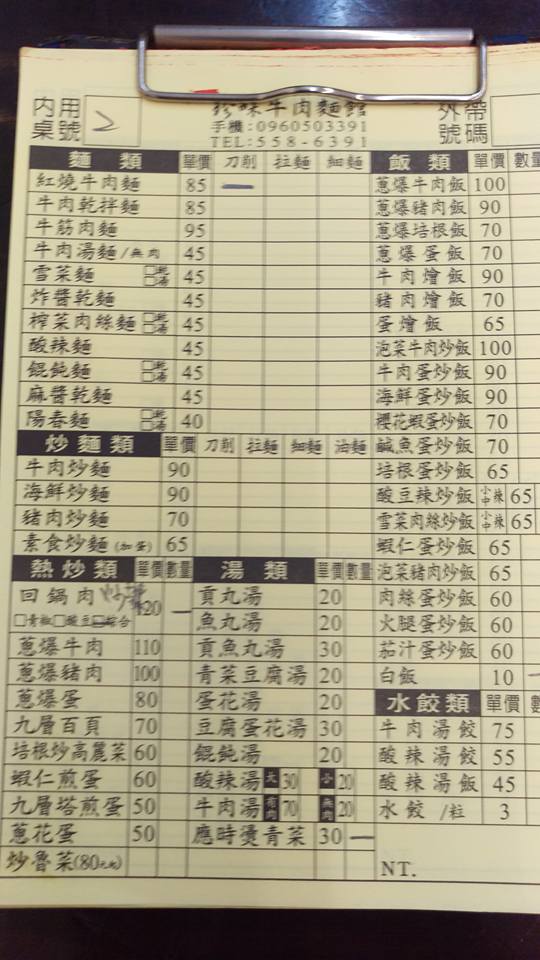 內用桌號 2
珍味牛肉麵館
手機:0960503391
TEL:558-6391
外帶號碼
麵類 單價 刀削 拉麵 細麵
紅燒牛肉麵 85 一
牛肉乾拌麵 85
牛筋肉麵 95
牛肉湯麵/無肉 45
雪菜麵 □乾 □湯 45
炸醬乾麵 45
榨菜肉絲麵 □乾 □湯 45
酸辣麵 45
餛飩麵 □乾 □湯 45
麻醬乾麵 45
陽春麵 □乾 □湯 40
炒麵類 單價 刀削 拉麵 細麵 油麵
牛肉炒麵 90
海鮮炒麵 90
豬肉炒麵 70
素食炒麵(加蛋) 65
熱炒類 單價 數量
回鍋肉 120 一
□青椒□酸豆□綜合
蔥爆牛肉 110
蔥爆豬肉 100
蔥爆蛋 80
九層百頁 70
培根炒高麗菜 60
蝦仁煎蛋 60
九層塔煎蛋 50
蔥花蛋 50
炒魯菜(80元起)
湯類 單價 數量
貢丸湯 20
魚丸湯 20
貢魚丸湯 30
青菜豆腐湯 20
蛋花湯 20
豆腐蛋花湯 30
餛飩湯 20
酸辣湯 大 30 小 20
牛肉湯 有肉 70 無肉 20
應時燙青菜 30 一
飯類 單價 數量
蔥爆牛肉飯 100
蔥爆豬肉飯 90
蔥爆培根飯 70
蔥爆蛋飯 70
牛肉燴飯 90
豬肉燴飯 70
蛋燴飯 65
泡菜牛肉炒飯 100
牛肉蛋炒飯 90
海鮮蛋炒飯 90
櫻花蝦蛋炒飯 70
鹹魚蛋炒飯 70
培根蛋炒飯 65
酸豆辣炒飯 小辣 中辣 65
雪菜肉絲炒飯 小辣 中辣 65
蝦仁蛋炒飯 65
泡菜豬肉炒飯 65
肉絲蛋炒飯 60
火腿蛋炒飯 60
茄汁蛋炒飯 60
白飯 10 一
水餃類 單價 數量
牛肉湯餃 75
酸辣湯餃 55
酸辣湯飯 45
水餃/粒 3
NT.